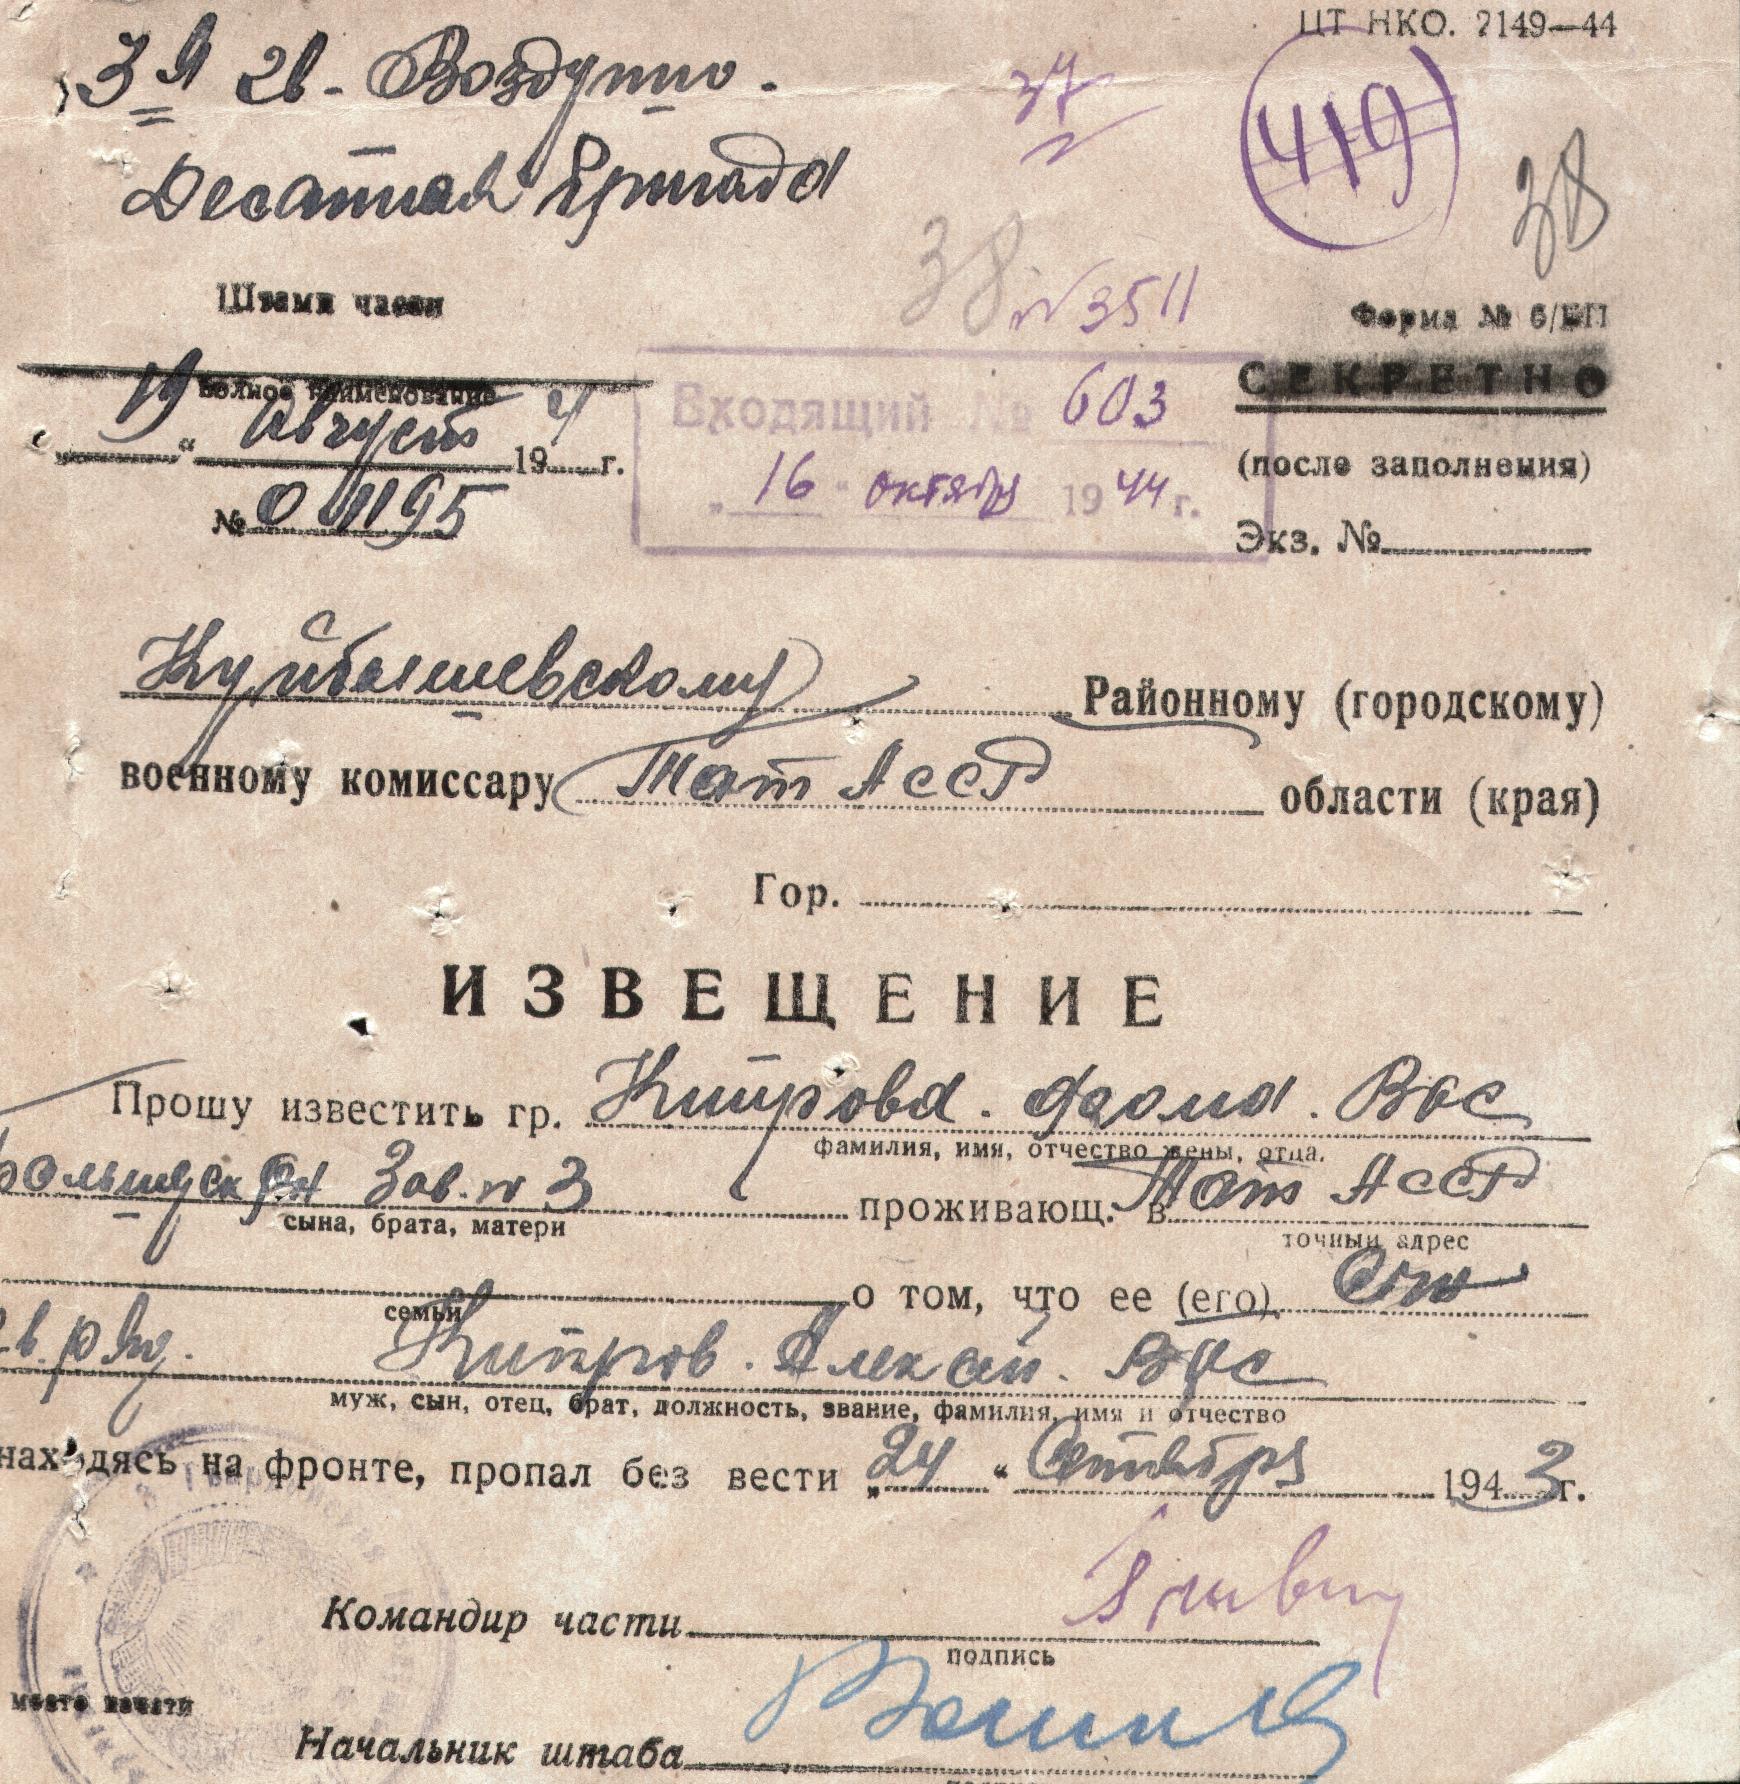 ЦТ НКО. 2149—44
3я гв- Воздушно.
Десантная Бригада
37
419
38
38
№3511
Штамп части
Форма № 6/БП
СЕКРЕТНО
полное наименование
„19“ Август 194 г.
Входящий № 603
(после заполнения)
„16“ октября 1944 г.
№ 01195
Экз. №
Куйбышевскому Районному (городскому)
военному комиссару Тат АССР области (края)
Гор.
ИЗВЕЩЕНИЕ
Прошу известить гр. Кипрова. Фаома. Вас
фамилия, имя, отчество жены, отца,
Зав. № 3 проживающ. в Тат АССР
сына, брата, матери
точный адрес
о том, что ее (его) Сын
семьи
гв. ряд. Кипров. Алексей. Вас
муж, сын, отец, брат, должность, звание, фамилия, имя и отчество
находясь на фронте, пропал без вести „24“ Сентября 1943 г.
Командир части
подпись
место печати
Начальник штаба